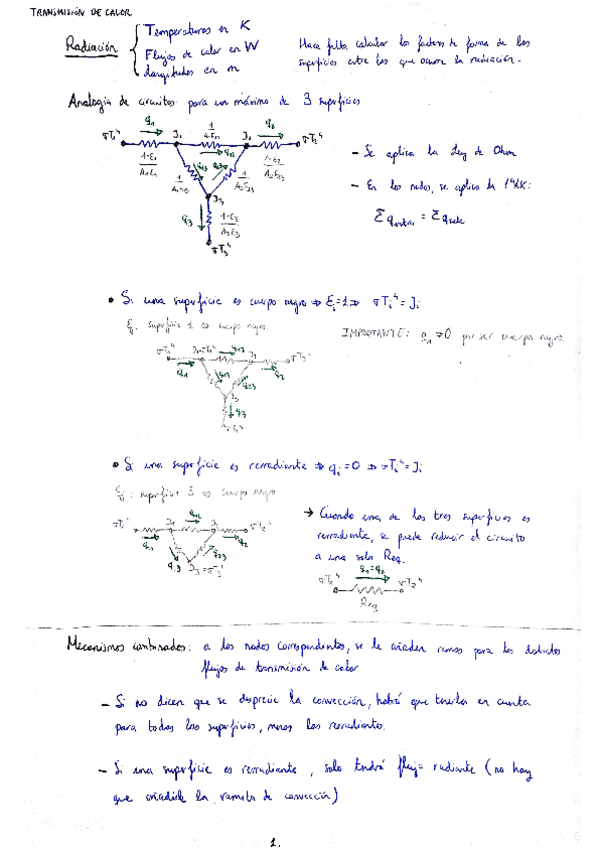 TRANSMISIÓN DE CALOR
Radiación
Temperaturas en K
Flujos de calor en W
Longitudes en m
Hace falta calcular los factores de forma de las
superficies entre las que ocurre la radiación.
Analogía de circuitos para un máximo de 3 superficies
σT₁⁴ q₁ J₁ q₁₂ J₂ q₂ σT₂⁴
1-ε₁ / A₁ε₁
1-ε₂ / A₂ε₂
q₁₃ q₂₃
1 / A₂F₂₃
J₃
q₃ 1-ε₃ / A₃ε₃
σT₃⁴
- Se aplica la Ley de Ohm
- En los nodos, se aplica la 1ªLK:
Σ q entra = Σ q sale
• Si una superficie es cuerpo negro ⇒ εᵢ=1 ⇒ σTᵢ⁴ = Jᵢ
Ej. superficie 1 es cuerpo negro
IMPORTANTE: por ser cuerpo negro
• Si una superficie es rerradiante ⇒ qᵢ=0 ⇒ σTᵢ⁴ = Jᵢ
Ej: superficie 3 es cuerpo negro
→ Cuando una de las tres superficies es
rerradiante, se puede reducir el circuito
a una sola Req.
σT₁⁴ q₁=q₂ σT₂⁴
Req
Mecanismos combinados: a los nodos correspondientes, se le añaden ramas para los distintos
flujos de transmisión de calor
- Si no dicen que se desprecie la convección, habrá que tenerla en cuenta
para todas las superficies, menos las rerradiantes.
- Si una superficie es rerradiante, solo tendrá flujo radiante (no hay
que añadirle la ramita de convección)
1.